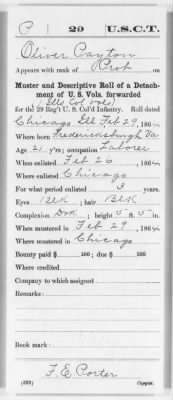 P 29 U.S.C.T.
Oliver Payton
Appears with rank of Pvt on
Muster and Descriptive Roll of a Detach-
ment of U. S. Vols. forwarded
(Ills Col Vols)
for the 29 Reg't U. S. Col'd Infantry. Roll dated
Chicago Ill Feb 29, 1864.
Where born Fredericksburgh Va
Age 21 y'rs; occupation Laborer
When enlisted Feb 26, 1864.
Where enlisted Chicago
For what period enlisted 3 years.
Eyes Blk; hair Blk
Complexion Drk; height 5 ft. 5 in.
When mustered in Feb 29, 1864.
Where mustered in Chicago
Bounty paid $ 100; due $ 100
Where credited
Company to which assigned
Remarks:
Book mark:
F. E. Porter
(339) Copyist.